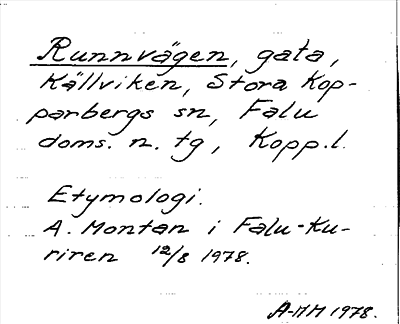 Runnvägen, gata,
Källviken, Stora Kop-
parbergs sn, Falu
doms. n. tg, Kopp.l.
Etymologi.
A. Montan i Falu-Ku-
riren 12/8 1978.
A-MM 1978.